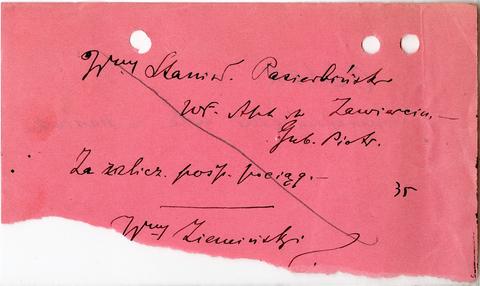 Wny Stanisł. Pasierbiński
Wł. Apt. w Zawierciu.—
Gub. Piotr.
Za zalicz. posp. pociąg.—
35
Wny Ziemiński